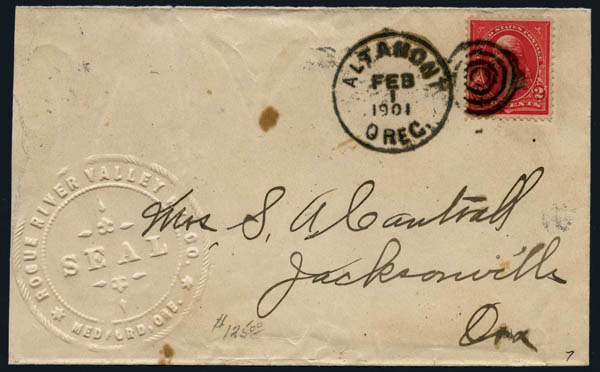 ALTAMONT
FEB
1
1901
OREC.
U.S. POSTAGE
2
CENTS
ROGUE RIVER VALLEY CO
SEAL
MEDFORD, OR.
Mrs S. A Cantrall
Jacksonville
Ore
$125.00
7